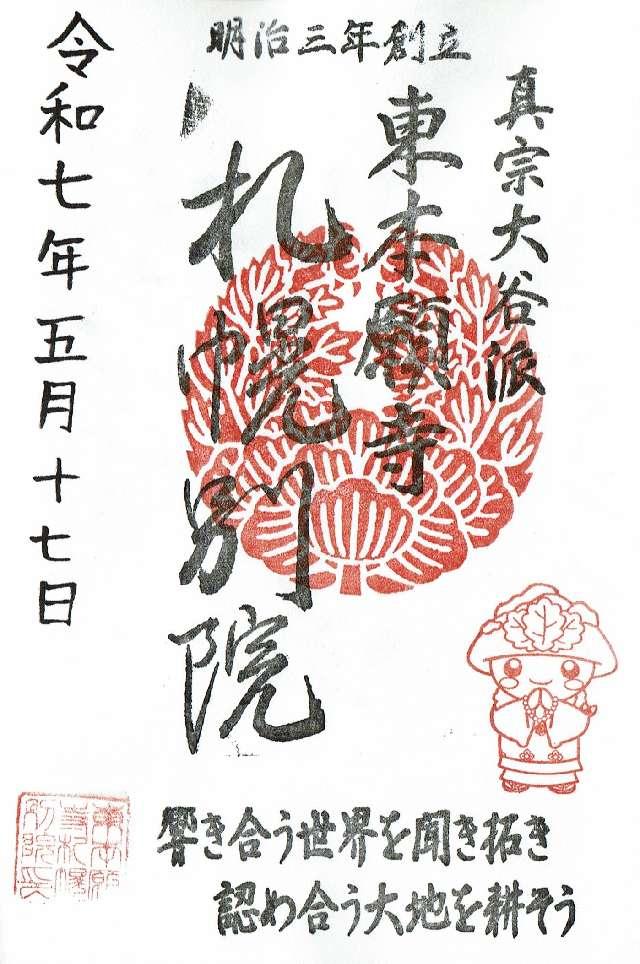 明治三年創立
真宗大谷派
東本願寺
札幌別院
令和七年五月十七日
響き合う世界を聞き拓き
認め合う大地を耕そう
東本願
寺札幌
別院長